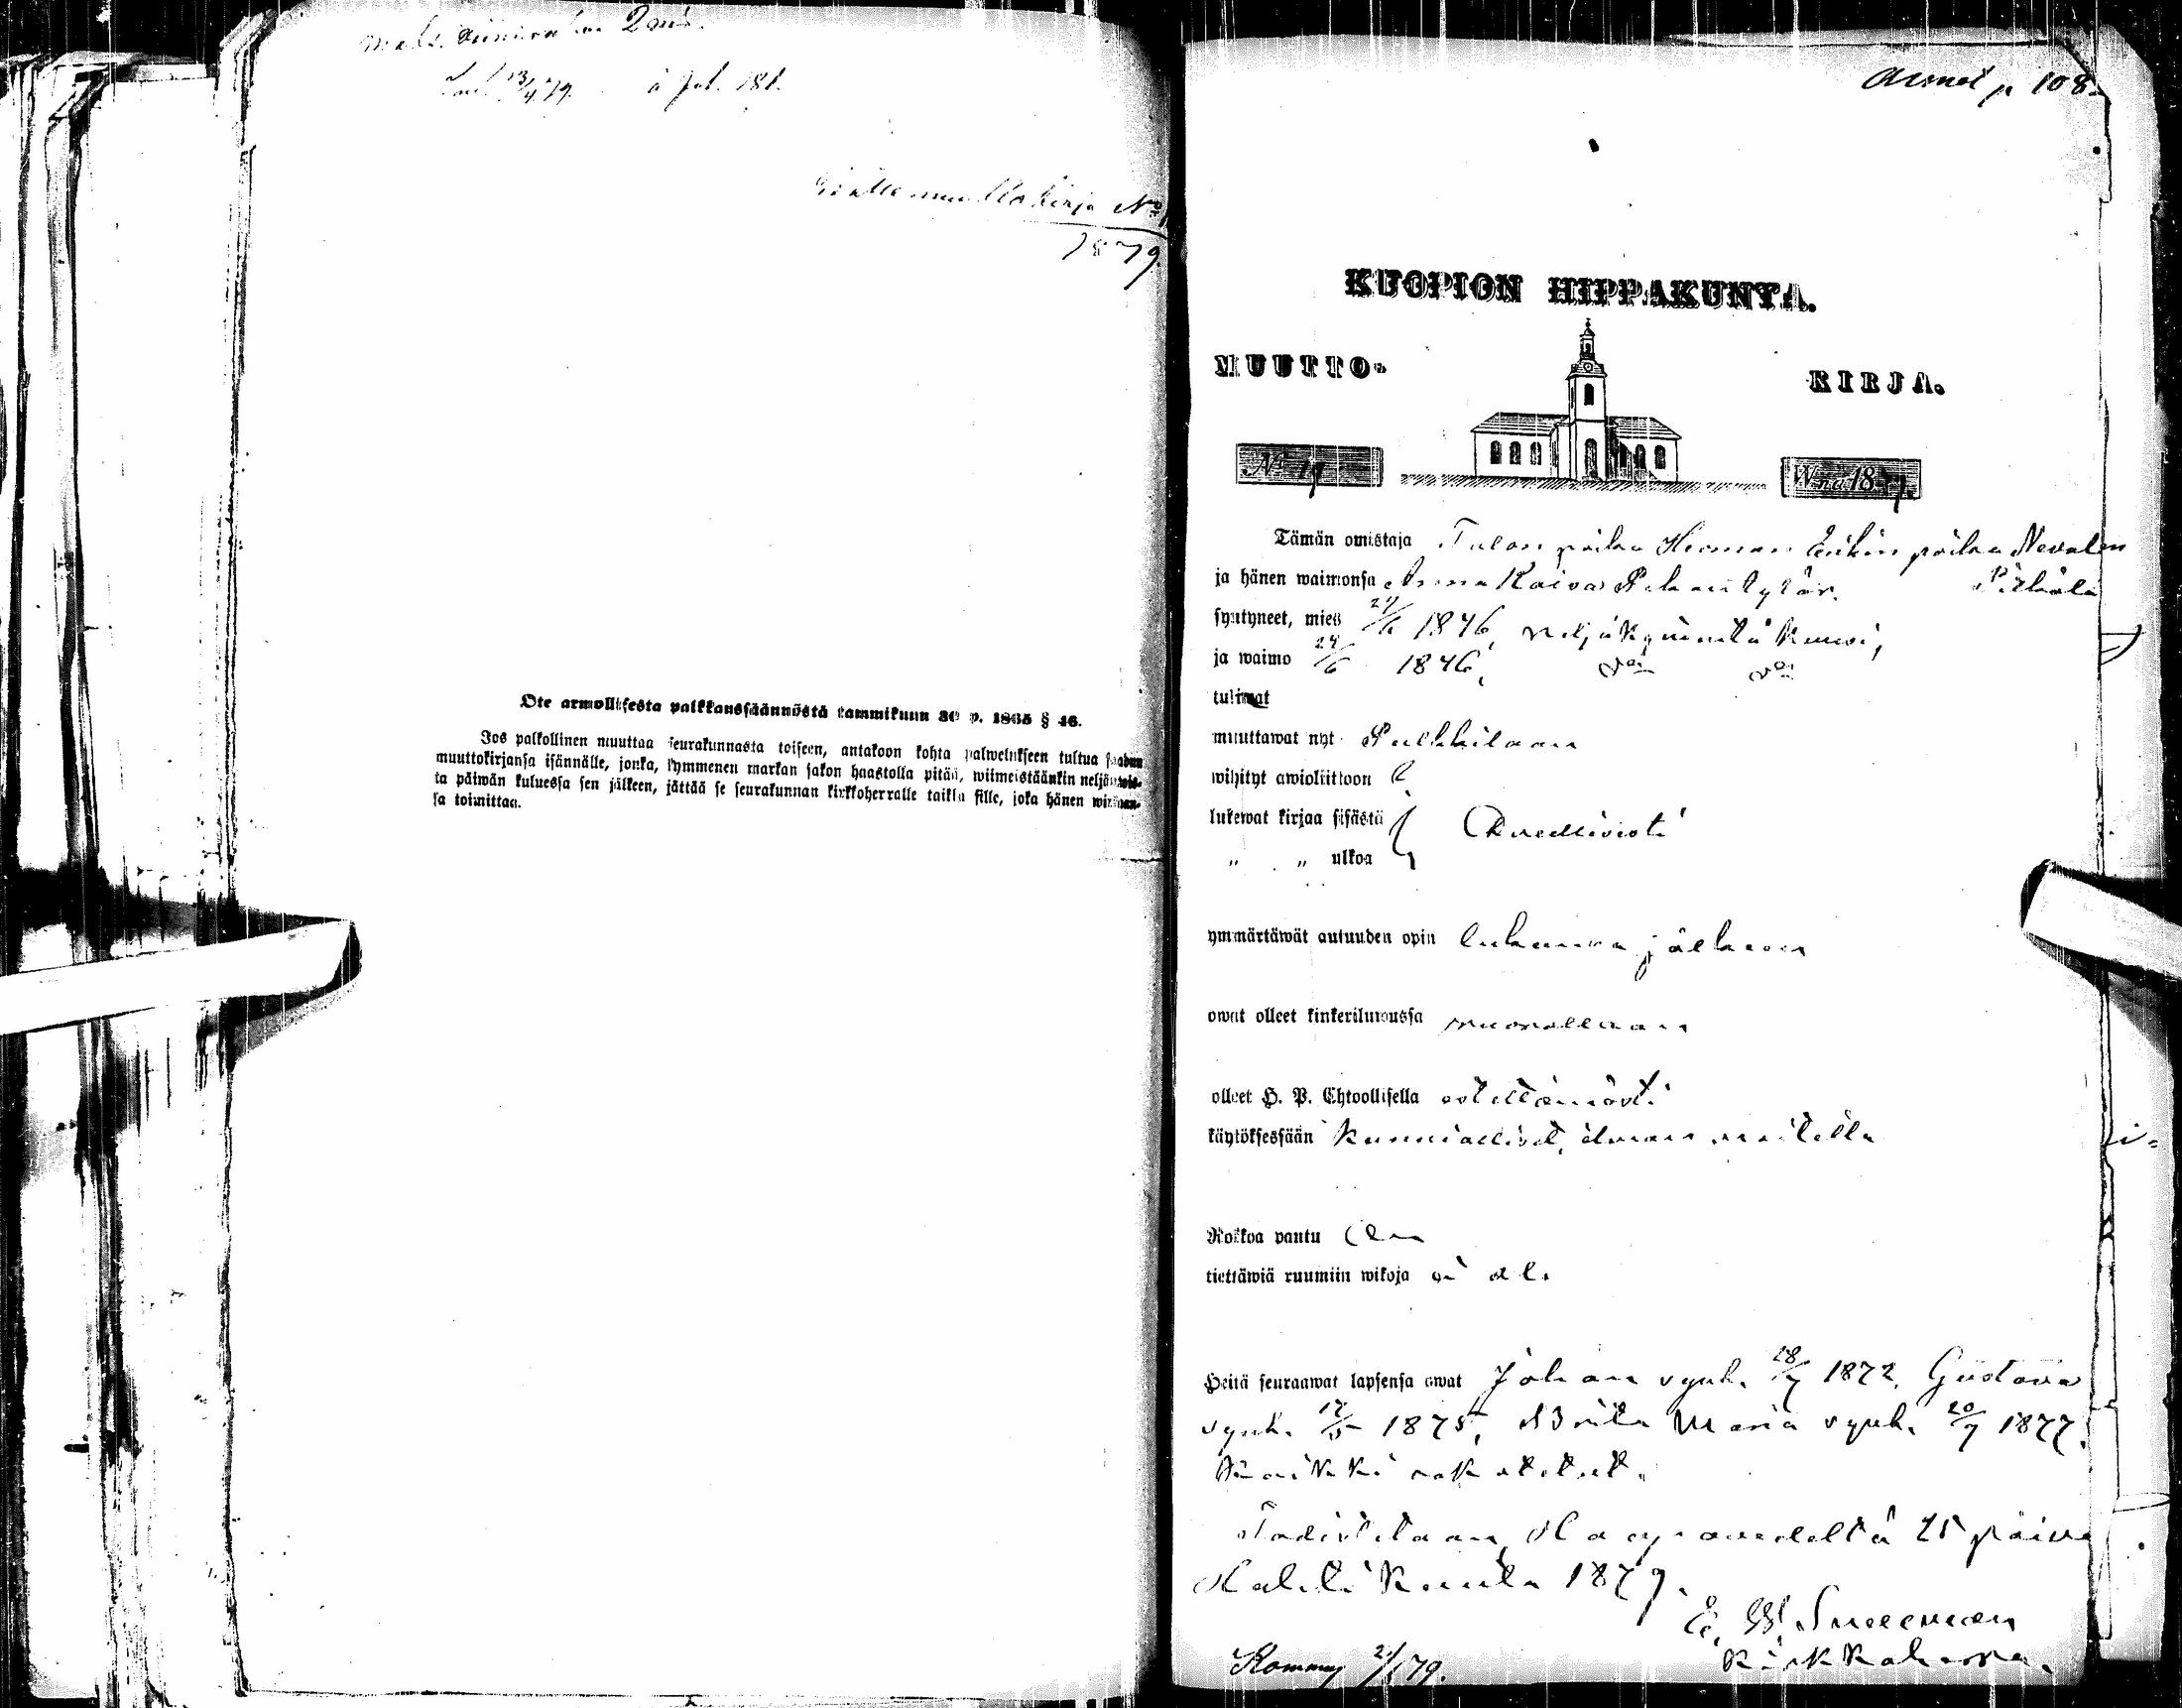 à fol. 181.
Sisällemuuttokirja No
1879.
Ote armollisesta palkkaussäännöstä tammikuun 30 p. 1865 § 46.
Jos palkollinen muuttaa seurakunnasta toiseen, antakoon kohta palwelukseen tultua saadun
muuttokirjansa isännälle, jonka, kymmenen markan sakon haastolla pitää, wiimeistäänkin neljäntois-
ta päiwän kuluessa sen jälkeen, jättää se seurakunnan kirkkoherralle taikka sille, joka hänen wirkaan-
sa toimittaa.
Annot p 108
KUOPION HIPPAKUNTA.
MUUTTO- KIRJA.
No 19 Wna 1879.
Tämän omistaja Talon poika Herman Erikin poika Nevalen
ja hänen waimonsa Anna Kaisa
syntyneet, mies 1846, neljäkymmentä kuusi,
ja waimo 24/6 1846,
tuliwat
muuttawat nyt Pulkkilaan
wihityt awioliittoon
lukewat kirjaa sisästä
" " ulkoa
ymmärtäwät autuuden opin lukunsa jälkeen
owat olleet kinkeriluwussa
olleet H. P. Ehtoollisella estettömästi
käytöksessään kunnialliset, ilman
Rokkoa pantu On
tiettäwiä ruumiin wikoja ei ole
Heitä seuraawat lapsensa owat Johan synt. 28/7 1872, Gustava
synt. 17/5 1875, Brita Maria synt. 20/7 1877.
kaikki rokotetut.
Todistetaan, Haapavedeltä 25 päivä
Huhtikuuta 1879.
E. W. Snellman
Kirkkoherra.